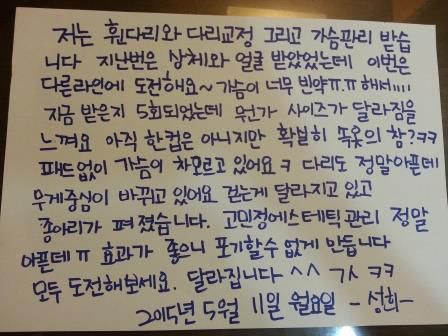 저는 휜다리와 다리교정 그리고 가슴관리 받습
니다 지난번은 상체와 얼굴 받았었는데 이번은
다른라인에 도전해요~ 가슴이 너무 빈약ㅠ.ㅠ해서....
지금 받은지 5회되었는데 뭔가 사이즈가 달라짐을
느껴요 아직 한컵은 아니지만 확실히 속옷의 참?ㅋㅋ
패드없이 가슴이 차오르고 있어요ㅋ 다리도 정말아픈데
무게중심이 바뀌고 있어요 걷는게 달라지고 있고
종아리가 펴졌습니다. 고민정에스테틱관리 정말
아픈데ㅠ 효과가 좋으니 포기할수 없게 만듭니다
모두 도전해보세요. 달라집니다 ^^ ㄱㅅ ㅋㅋ
2015년 5월 11일 월요일 -성희-